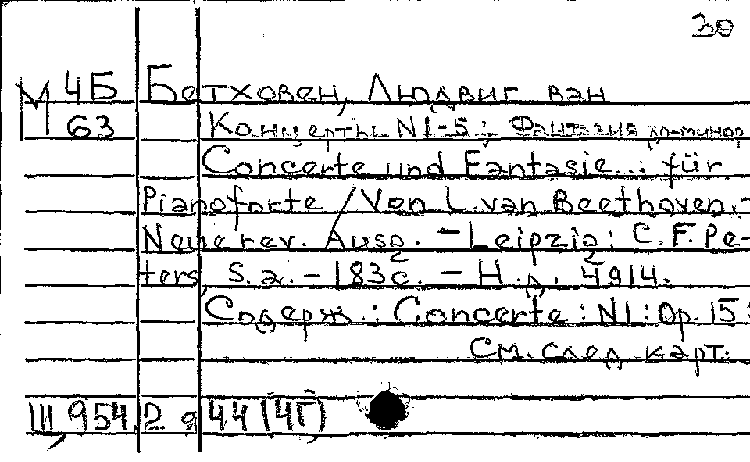 30
М 4Б Бетховен, Людвиг ван
63 Концерты N1-5; Фантазия до-минор
Concerte und Fantasie... für
Pianoforte / Von L. van Beethoven. -
Neue rev. Ausg. - Leipzig: C. F. Pe-
ters, s. a. - 183 с. - Н. д. 4914.
Содерж.: Concerte: N1: Op. 15:
См. след. карт.
Ш 954,2 44 (4Г)